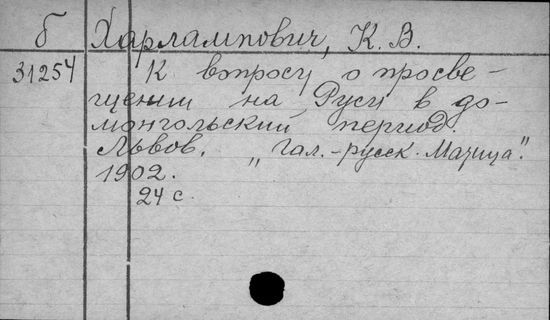 Б Харлампович, К. В.
31254 К вопросу о просве-
щении на Руси в до-
монгольский период.
Львов. "Гал.-русск. Матица".
1902.
24 с.